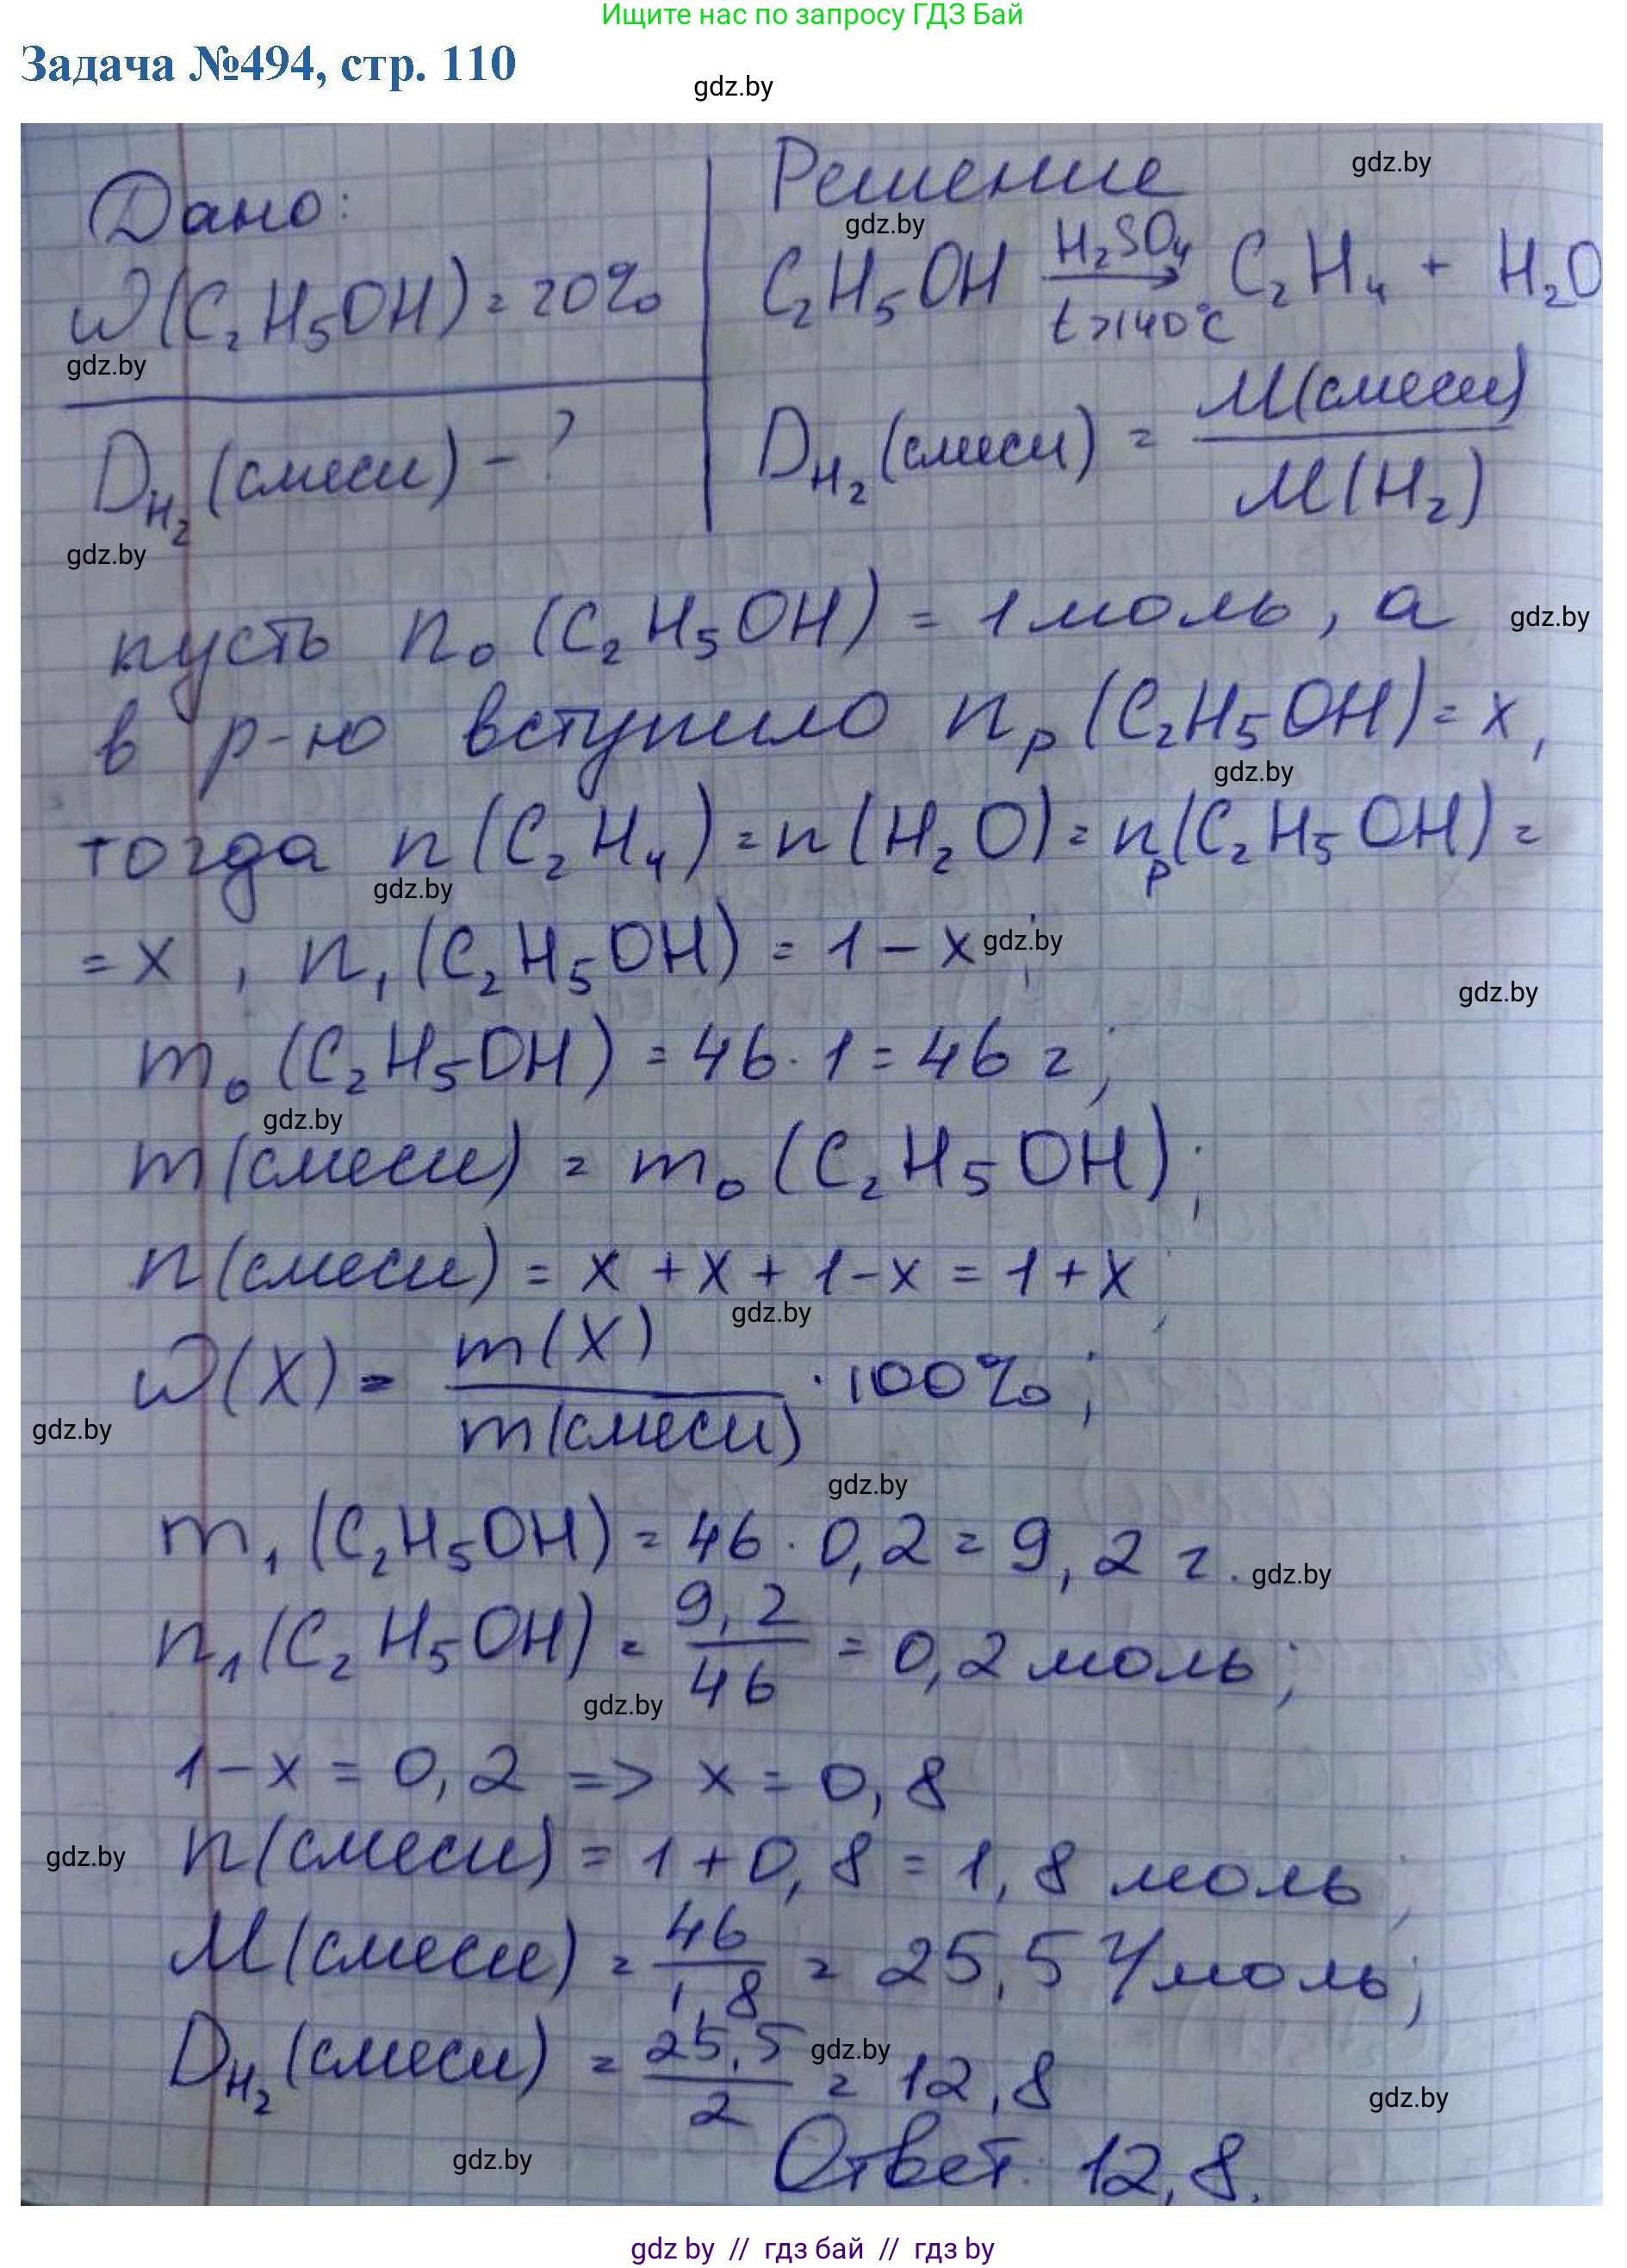 Ищите нас по запросу ГДЗ Бай
Задача №494, стр. 110
gdz.by
Дано:
W(C₂H₅OH) = 20%
gdz.by
D_H₂ (смеси) - ?
gdz.by
Решение
gdz.by
gdz.by
C₂H₅OH H₂SO₄ → t>140°C C₂H₄ + H₂O
D_H₂ (смеси) = M(смеси) / M(H₂)
пусть n₀ (C₂H₅OH) = 1 моль, а
gdz.by
в р-ю вступило nₚ (C₂H₅OH) = x,
gdz.by
тогда n(C₂H₄) = n(H₂O) = nₚ(C₂H₅OH) =
gdz.by
= x , n₁ (C₂H₅OH) = 1 - x ;
gdz.by
gdz.by
m₀ (C₂H₅OH) = 46 · 1 = 46 г;
gdz.by
m(смеси) = m₀ (C₂H₅OH);
n(смеси) = x + x + 1-x = 1+x;
gdz.by
W(X) = m(X) / m(смеси) · 100%;
gdz.by
gdz.by
m₁ (C₂H₅OH) = 46 · 0,2 = 9,2 г.
gdz.by
n₁ (C₂H₅OH) = 9,2 / 46 = 0,2 моль;
gdz.by
1-x = 0,2 => x = 0,8
gdz.by
n(смеси) = 1 + 0,8 = 1,8 моль;
M(смеси) = 46 / 1,8 = 25,5 г/моль;
D_H₂ (смеси) = 25,5 / 2 = 12,8
gdz.by
gdz.by
gdz.by
Ответ: 12,8.
gdz by // гдз бай // гдз by